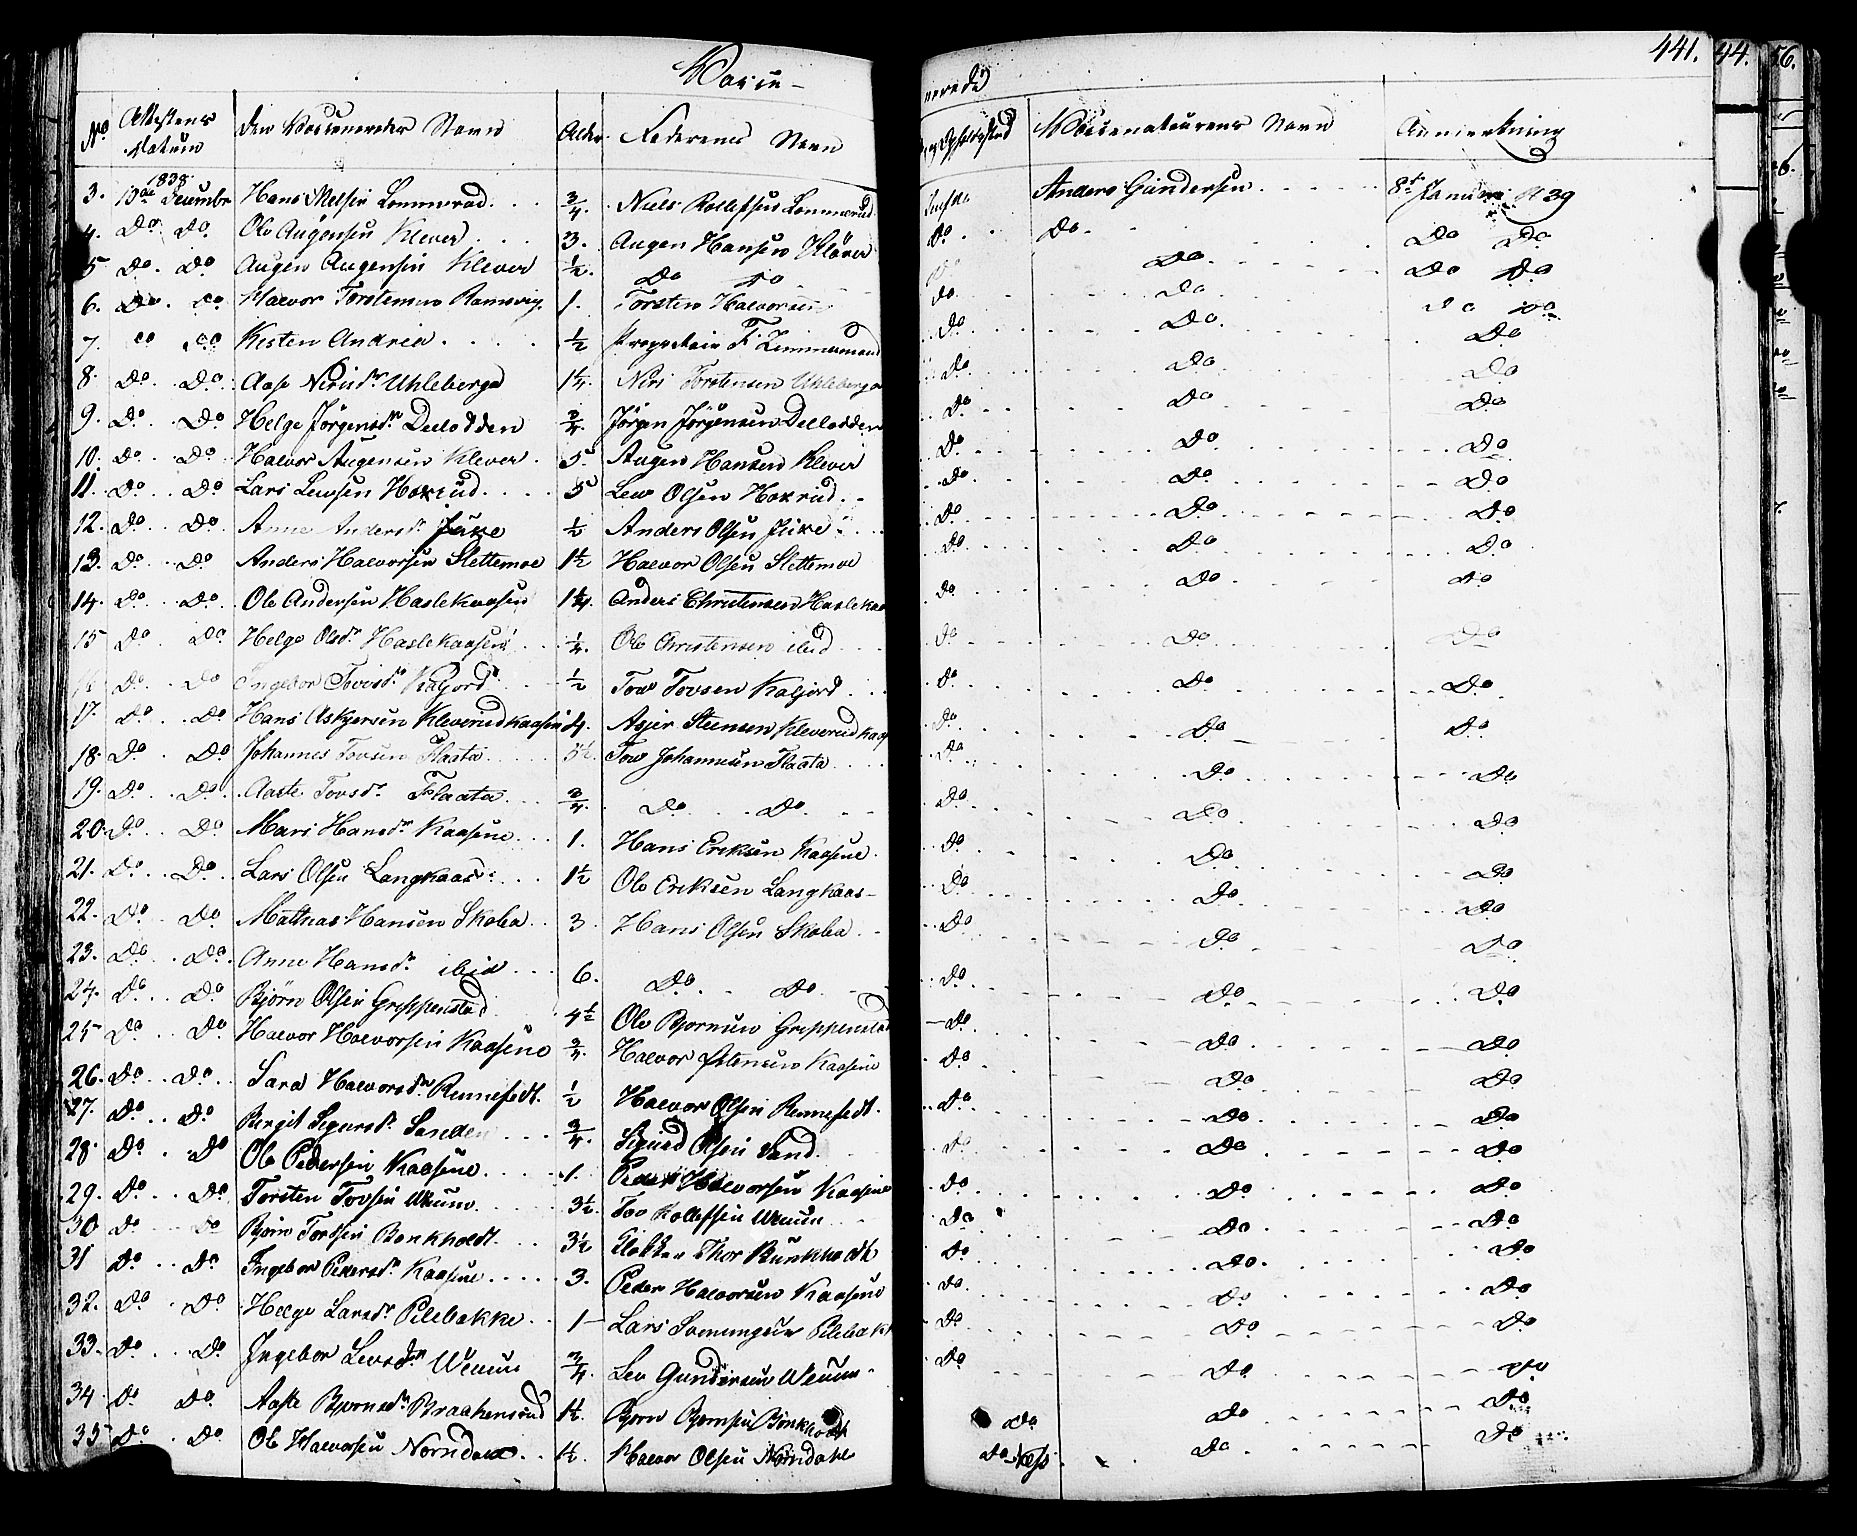 441. 44. 46.
Vacci- nerede
No Attestens Datum den Vaccineredes Navn Alder Faderens Navn og Opholdssted Vaccinateurens Navn Anmerkning
3. 1838 13de December Hans Nielsen Lommerud 3/4. Niels Rollefsen Lommerud Anders Gundersen 8t Januar 1839
4. Do Do Ole Augensen Klever 3. Augen Hansen Kløver Do Do Do Do
5 Do Do Augen Augensen Klever 1/2. Do Do Do Do Do
6. Do Do Halvor Torstensen Ramsvig 1. Torsten Halvorsen Do Do Do Do
7. Do Do Kisten Andrea 1/2 F. Zimmermand Do Do Do
8. Do Do Aase Nirisdr Uhleberg 1 1/4. Niri Torstensen Uhleberg Do Do Do
9. Do Do Helge Jörgensdr Delodden 3/4. Jörgen Jörgensen Dellodden Do Do Do
10. Do Do Halvor Augensen Klever 5. Augen Hansen Klever Do Do Do
11. Do Do Lars Levsen Hoxrud 5 Lew Olsen Hoxrud Do Do Do
12. Do Do Anne Andersdr Juve 1/2 Anders Olsen Juve Do Do Do
13. Do Do Anders Halvorsen Slettemoe 1 1/2 Halvor Olsen Slettemoe Do Do Do
14. Do Do Ole Andersen Haslekaasen 1 1/4. Anders Christensen Haslekaa Do Do Do
15 Do Do Helge Olsdr Haslekaasen 1/4. Ole Christensen ibid Do Do Do
16 Do Do Ingebor Tovsdr Kasjord 1/2 Tow Tovsen Kasjord Do Do Do
17. Do Do Hans Askjersen Kleverudkaasen 4. Asjer Steensen Kleverudkaas Do Do Do
18. Do Do Johannes Tovsen Flaata 5 1/2. Tow Johannesen Flaata Do Do Do
19. Do Do Aaste Tovsdr Flaata 3/4. Do Do Do Do Do
20. Do Do Mari Hansdr Kaasene 1. Hans Eriksen Kaasene Do Do Do
21. Do Do Lars Olsen Langkaas 1 1/2 Ole Eriksen Langkaas Do Do Do
22. Do Do Mathias Hansen Skoba 3 Hans Olsen Skoba Do Do Do
23. Do Do Anne Hansdr ibid 6. Do Do Do Do Do
24. Do Do Bjørn Olsen Greppenstad 4 1/2 Ole Bjørnsen Greppenstad Do Do Do
25 Do Do Halvor Halvorsen Kaasene 3/4. Halvor Estensen Kaasene Do Do Do
26. Do Do Sara Halvorsdr Rennesedt 1/2 Halvor Olsen Rennesedt Do Do Do
27. Do Do Birgit Sigursdr Sanden 3/4. Sigurd Olsen Sand Do Do Do
28. Do Do Ole Pedersen Kaasene 1. Peder Halvorsen Kaasene Do Do Do
29. Do Do Torsten Tovsen Werum 3 1/2. Tov Rollefsen Werum Do Do Do
30 Do Do Bjørn Torssen Bønkholdt 3 1/2 Klokker Thor Bünkholdt Do Do Do
31 Do Do Ingebor Pedersdr Kaasene 3. Peder Halvorsen Kaasene Do Do Do
32. Do Do Helge Larsdr Pilebakke 1 Lars Pilebak Do Do Do
33. Do Do Ingebor Levsdr Werum 3/4 Lev Gundersen Werum Do Do Do
34 Do Do Aaste Bjørnsdr Braakensrud 1 1/2. Bjørn Bjørnsen Bønkholdt Do Do Do
35 Do Do Ole Halvorsen Norndale 1 1/2. Halvor Olsen Norndale Do Do Do